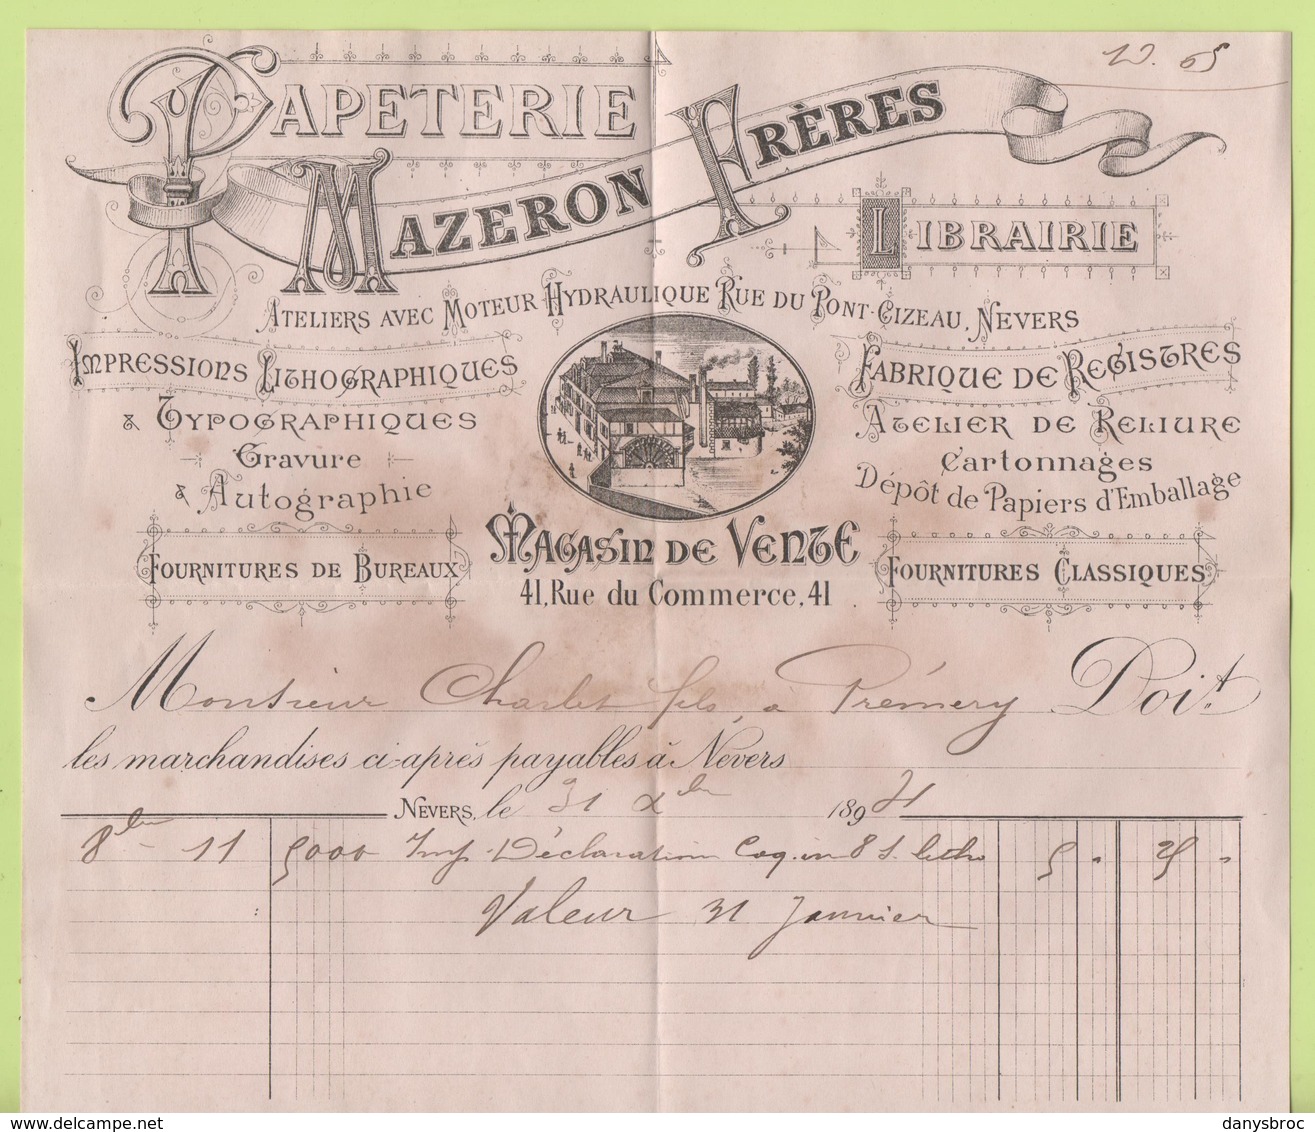 65
PAPETERIE
MAZERON FRÈRES
LIBRAIRIE
ATELIERS AVEC MOTEUR HYDRAULIQUE RUE DU PONT-CIZEAU, NEVERS
IMPRESSIONS LITHOGRAPHIQUES
& TYPOGRAPHIQUES
Gravure
& Autographie
FOURNITURES DE BUREAUX
FABRIQUE DE REGISTRES
ATELIER DE RELIURE
Cartonnages
Dépôt de Papiers d'Emballage
FOURNITURES CLASSIQUES
MAGASIN DE VENTE
41, Rue du Commerce, 41
Monsieur Charlet fils, à Prémery Doit
les marchandises ci-après payables à Nevers
NEVERS, le 31 Xbre 189
8bre - 11 5000 Imp. Déclaration Coq. in 8 litho 5 " 25 "
Valeur 31 Janvier
delcampe.net
danysbroc